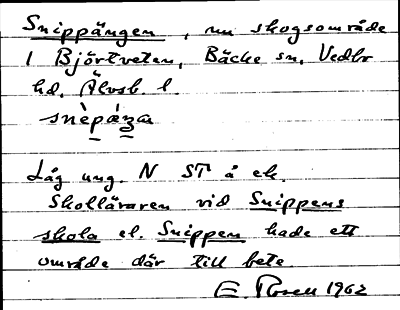 Snippängen, nu skogsområde
i Björtveten, Bäcke sn, Vedbo
hd, Älvsb. l.
snèpáŋa
Låg ung. N ST å ek.
Skolläraren vid Snippens
skola el. Snippen hade ett
område där till bete
E. Rosell 1962